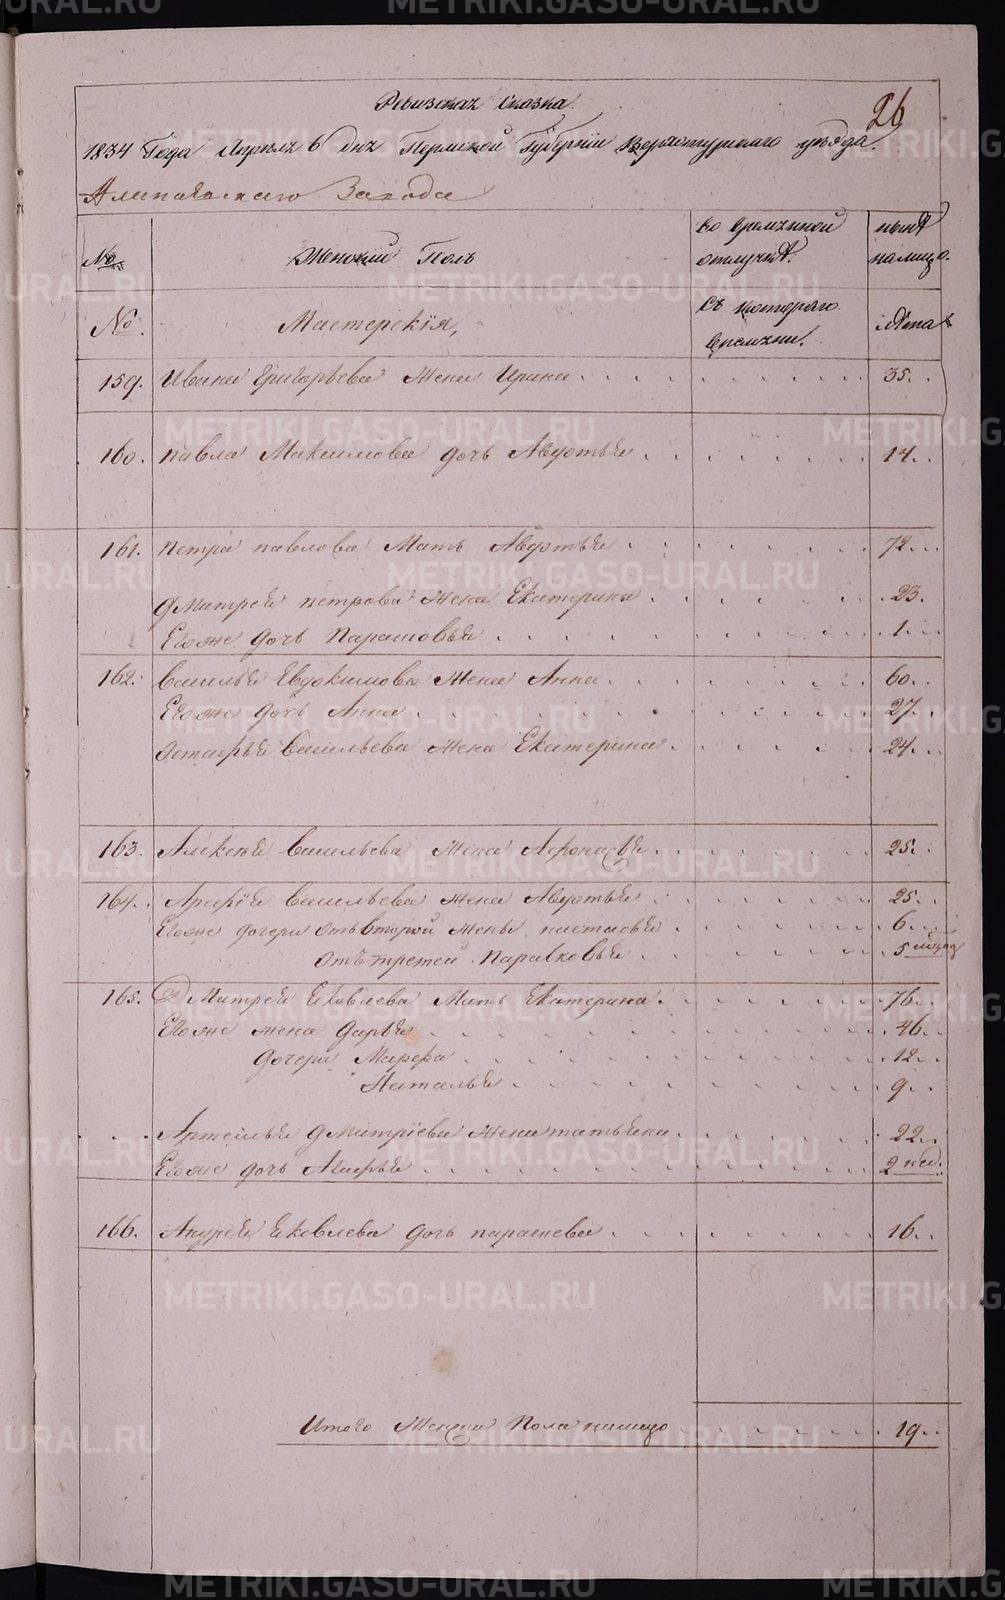 26
Ревизская Сказка
1834 Года Апреля 6 дня Пермской Губернiи Верхотурскаго уѣзда.
Алапаевскаго Завода
№
Женский Полъ
во временной отлучкѣ.
нынѣ налицо.
№
Мастерскiя,
Съ котораго времени.
лѣта
159. Ивана Григорьева жена Ирина 35.
160. Павла Максимова дочь Авдотья 14.
161. Петра павлова Мать Авдотья 72.
дмитрея петрова жена Екатерина 23.
Егоже дочь Парасковья 1.
162. Василья Евдокимова жена Анна 60.
Егоже дочь Анна 27.
Остафья Васильева жена Екатерина 24.
163. Алексея Васильева жена Афонасья 25.
164. Арефiя Васильева жена Авдотья 25.
Егоже дочери отъ второй жены настасья 6.
отъ третей Парасковья 5 месяц
165. Дмитрея Яковлева Мать Екатерина 76.
Егоже жена дарья 46.
дочери Марфа 12.
Наталья 9.
Артемья дмитрiева жена татьяна 22.
Егоже дочь Агафья 2 нед.
166. Андрея Яковлева дочь парасковья 16.
Итого Женска Пола налицо 19.
METRIKI.GASO-URAL.RU